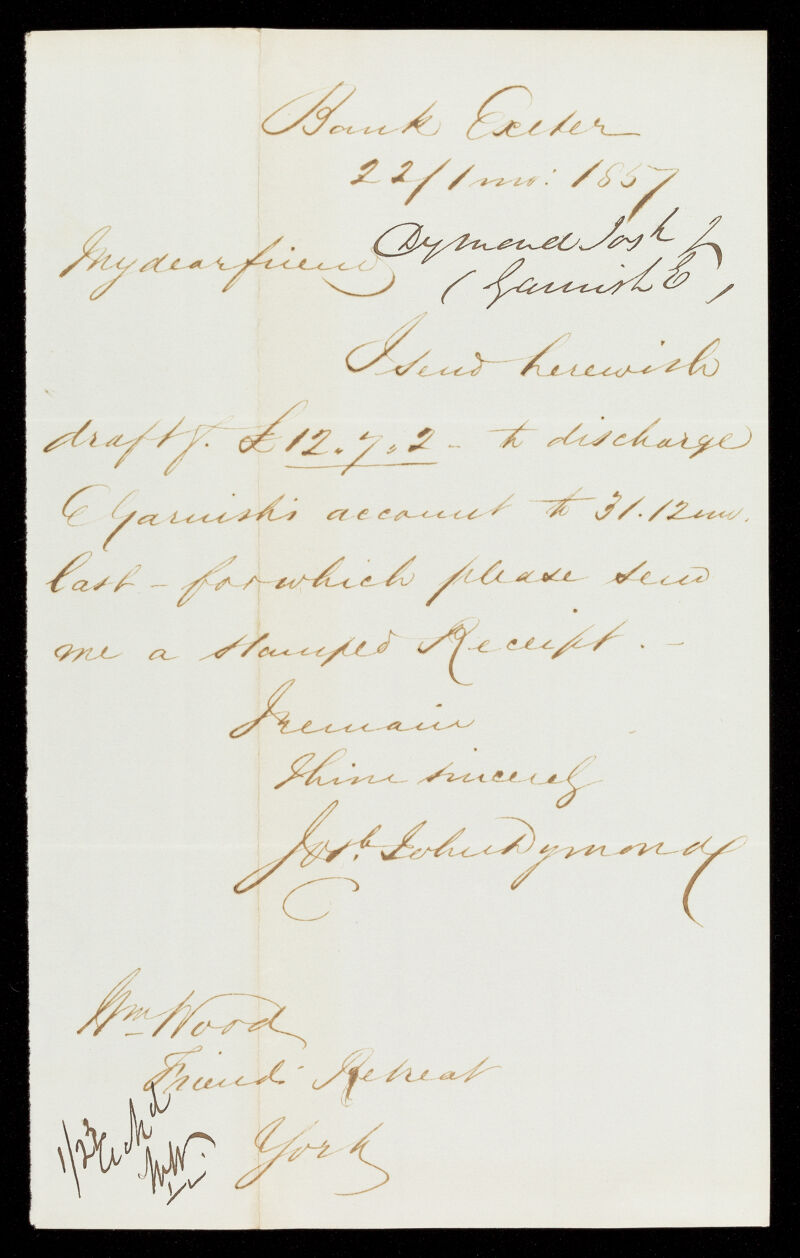 Bank Exeter
22/1 mo: 1857
My dear friend
Dymond Josh J
(Garnish E)
I send herewith
draft f. £12.7.2 - to discharge
E Garnish's account to 31.12mo.
last - for which please send
me a stamped Receipt. -
I remain
Thine sincerely
Josh. John Dymond
Wm Wood
Friends Retreat
York
1/23 Ackd
WW.